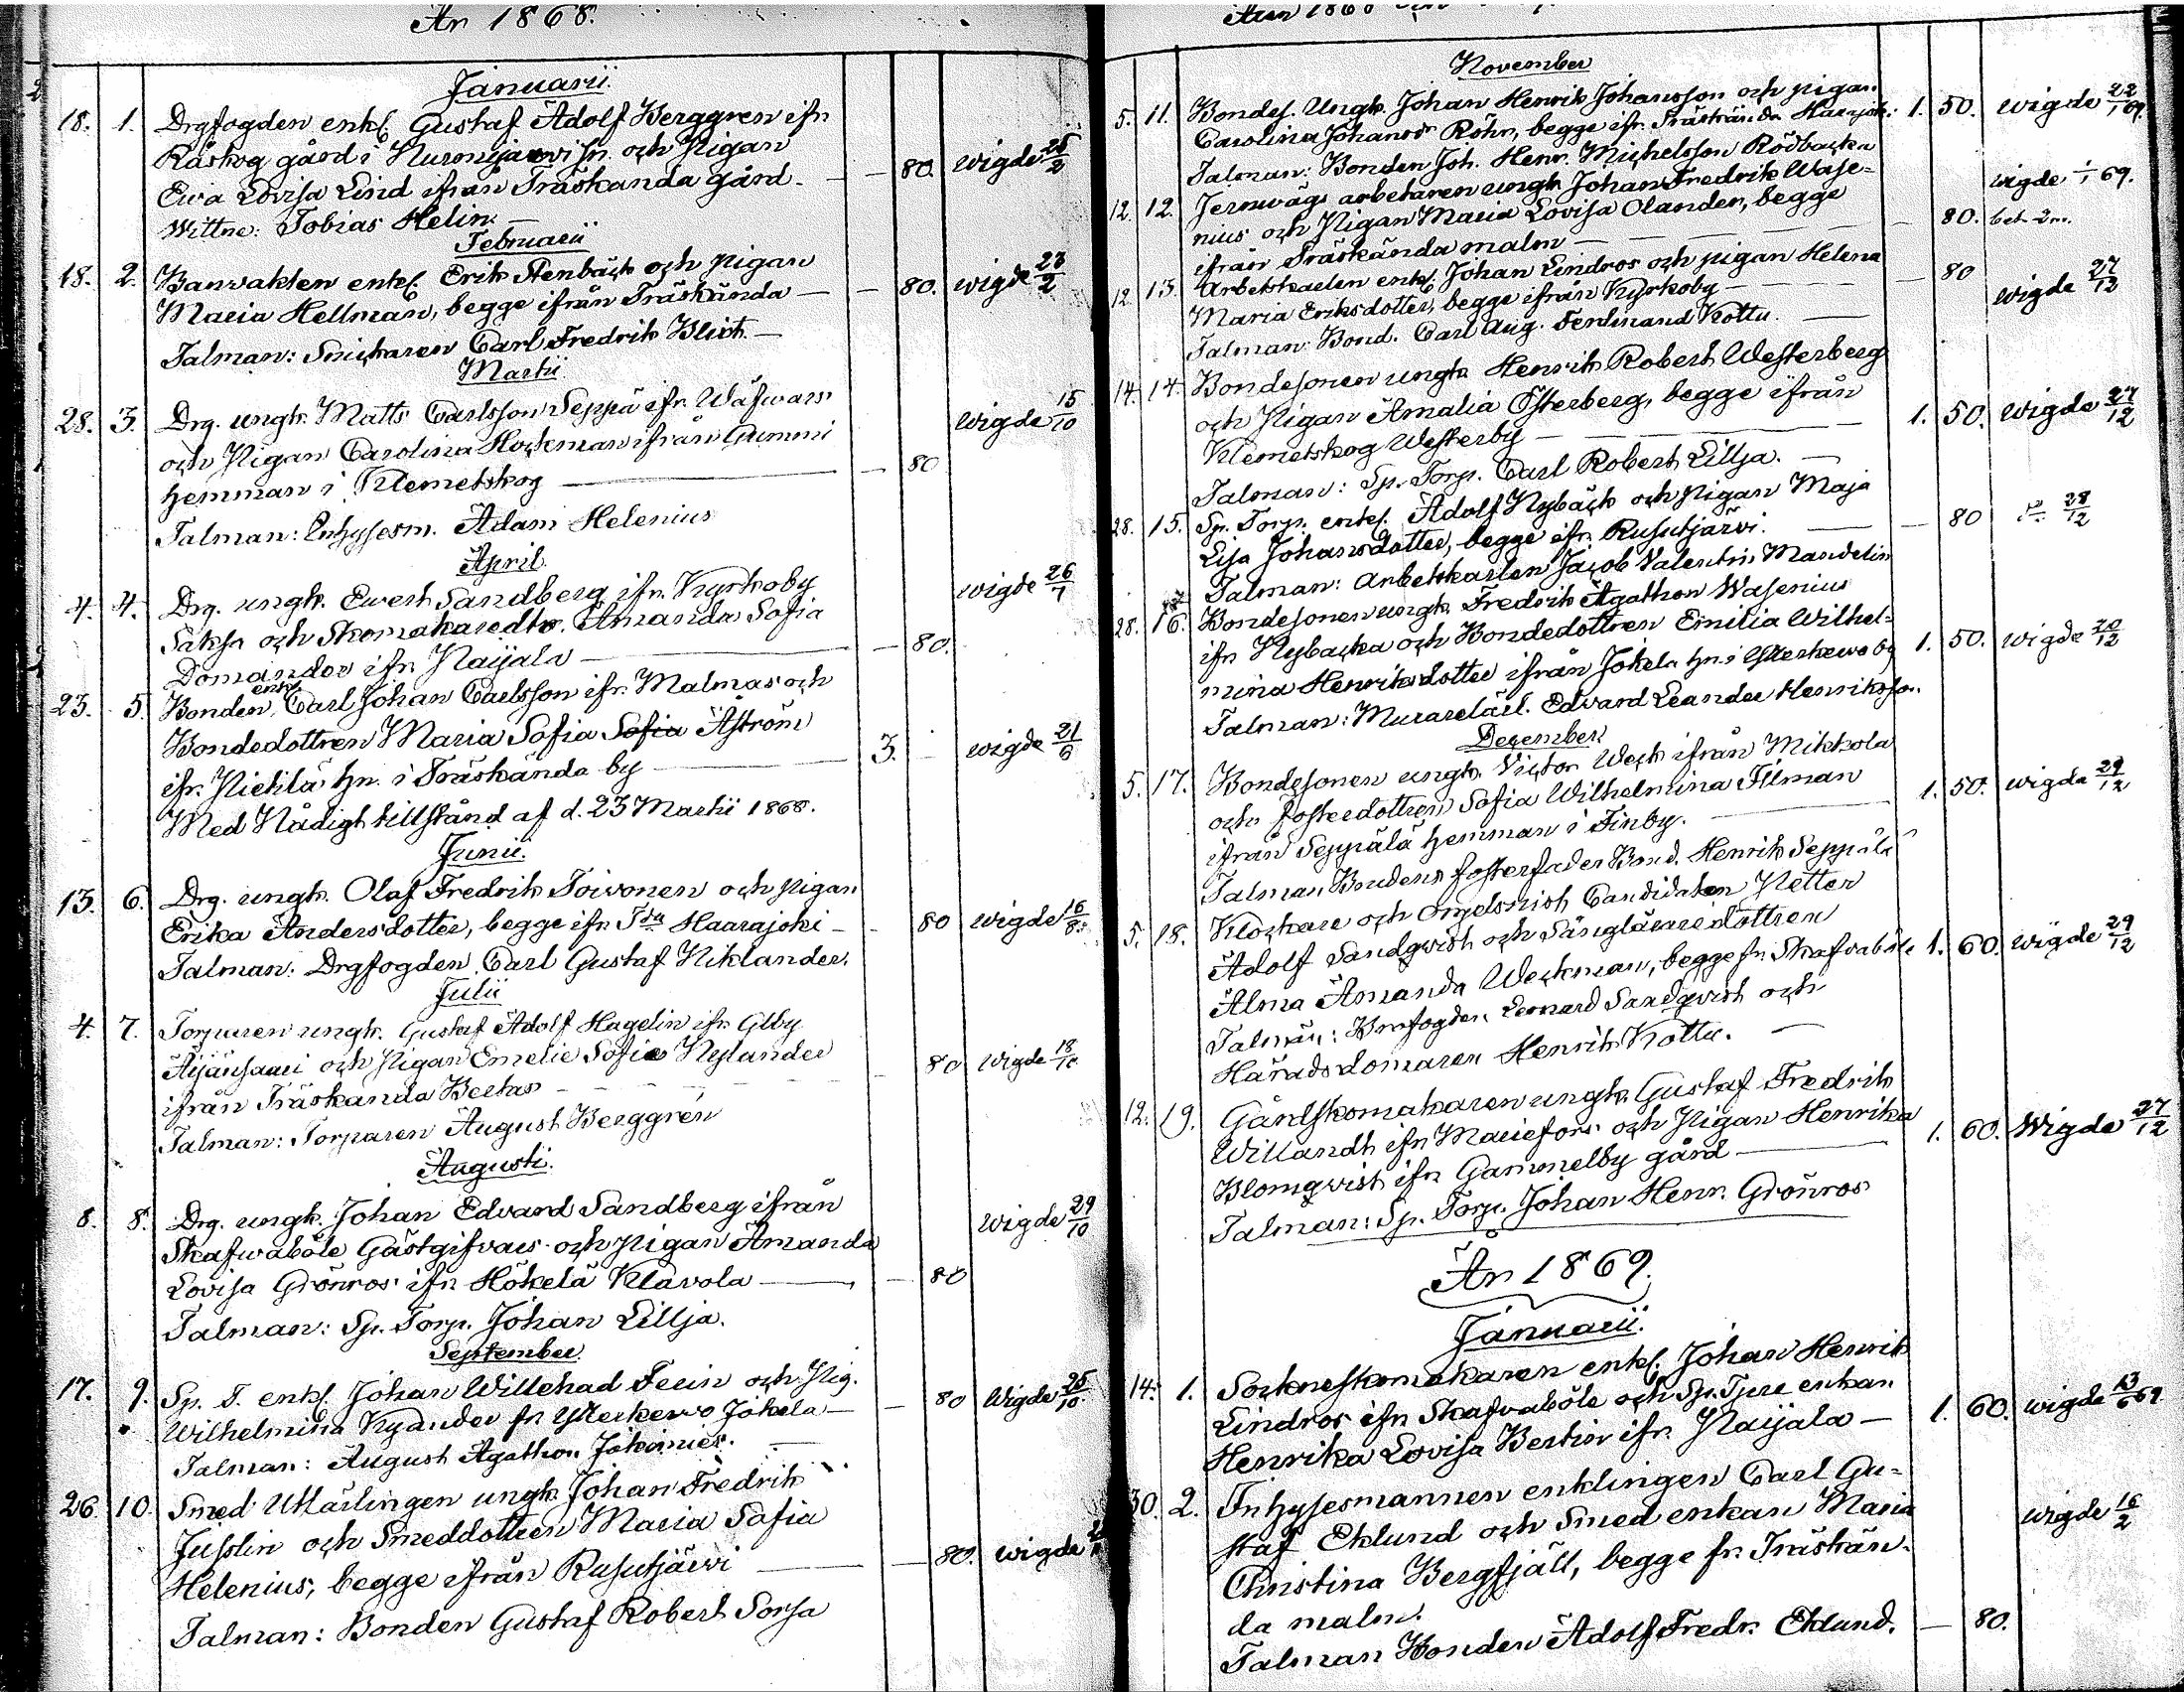 År 1868.
Januarii.
18. 1. Drgfogden enkl. Gustaf Adolf Berggren ifr
Råskog gård i Nurmijärvi sn. och Pigan
Ewa Lovisa Lind ifrån Träskanda gård. — — 80. wigde 25/2
Wittne: Tobias Helin. —
Februarii
18. 2. Banvakten enkl. Erik Stenbäck och pigan
Maria Hellman, begge ifrån Träskända — — 80. wigde 23/2
Talman: Snickaren Carl Fredrik Blick. —
Martii
28. 3. Drg. ungk. Matts Carlsson Seppä ifr. Wäfwars wigde 15/10
och Pigan Carolina Hockman ifrån Gummi
hemman i Klemetskog — — 80
Talman: Inhysesm. Adam Helenius
April
4. 4. Drg. ungk. Ewert Sandberg ifr. Kyrkoby wigde 26/7
Säksa och Skomakaredtr. Amanda Sofia
Domander ifr. Naijala — — 80.
23. 5. Bonden enkl. Carl Johan Carlsson ifr. Malmas och
Bondedottren Maria Sofia Sofia Åström
ifr. Pietilä hn. i Träskända by — 3. — wigde 21/6
Med Nådigt tillstånd af d. 23 Martii 1868.
Junii.
13. 6. Drg. ungk. Olaf Fredrik Toivonen och pigan
Erika Andersdotter, begge ifr. Tda Haarajoki — - 80 wigde 16/8.
Talman: Drgfogden Carl Gustaf Niklander.
Julii
4. 7. Torparen ungk. Gustaf Adolf Hagelin ifr. Glby
Äijänsaari och Pigan Emelie Sofie Nylander
ifrån Träskanda Bertas — — 80 wigde 18/10
Talman: Torparen August Berggrén
Augusti.
8. 8. Drg. ungk. Johan Edvard Sandberg ifrån wigde 29/10
Skafwaböle Gästgifvars och pigan Amanda
Lovisa Grönros ifr. Hökelä Klavola — — 80
Talman: Sp. Torp. Johan Lillja.
September.
17. 9. Sp. T. enkl. Johan Willehad Feiin och Pig.
Wilhelmina Kyander fr. Ytterkervo Jokela — — 80 wigde 25/10.
Talman: August Agathon Johannies. —
26. 10. Smed Utlärlingen ungk. Johan Fredrik
Juslin och Smeddottren Maria Sofia
Helenius, begge ifrån Rusutjärvi — — 80. wigde
Talman: Bonden Gustaf Robert Sorsa
November
5. 11. Bondes. Ungk. Johan Henrik Johansson och pigan
Carolina Johansdr Röhr, begge ifr. Träskända Haarjoki: 1. 50. wigde 22/1 69.
Talman: Bonden Joh. Henr. Michelsson Rödbacka
12. 12. Jernvägs arbetaren ungk. Johan Fredrik Wase-
nius och Pigan Maria Lovisa Olander, begge wigde 69.
ifrån Träskända malm — — 80.
12. 13. Arbetskarlen enkl. Johan Lindros och pigan Helena
Maria Eriksdotter, begge ifrån Kyrkoby — — 80 wigde 27/12
Talman: Bond. Carl Aug. Ferdinand Kottu. —
14. 14. Bondesonen ungk. Henrik Robert Westerberg
och Pigan Amalia Österberg, begge ifrån
Klemetskog Westerby — 1. 50. wigde 27/12
Talman: Sp. Torp. Carl Robert Lillja. —
28. 15. Sp. Torp. enkl. Adolf Nybäck och Pigan Maja
Lisa Johansdotter, begge ifr. Rusutjärvi. — — 80 28/12
Talman: Arbetskarlen Jacob Valentin Mandelin
28. 16. Bondesonen ungk. Fredrik Agathon Wasenius
ifr. Nybacka och Bondedottren Emilia Wilhel-
mina Henriksdotter ifrån Jokela hn. i Ytterkervo by 1. 50. wigde 20/12
Talman: Murarelärl. Edvard Leander Henriksson.
December
5. 17. Bondesonen ungk. Victor Weck ifrån Mikkola
och fosterdottren Sofia Wilhelmina Filman
ifrån Seppälä hemman i Finby. — 1. 50. wigde 29/12
Talman Brudens fosterfader Bond. Henrik Seppälä
5. 18. Klockare och Orgelsnist Candidaten Petter
Adolf Sandqvist och Sånglärare dottren
Alma Amanda Weckman, begge fr. Skafvaböle 1. 60. wigde 29/12
Talmän: Kronfogden Leonard Sandqvist och
Häradsdomaren Henrik Kottu. —
12. 19. Gårdskomakaren ungk. Gustaf Fredrik
Willandt ifr. Mariefors och Pigan Henrika
Blomqvist ifr. Gammelby gård — 1. 60. Wigde 27/12
Talman: Sp. Torp. Johan Henr. Grönros
År 1869.
Januarii.
14. 1. Sockneskomakaren enkl. Johan Henrik
Lindros ifr. Skafvaböle och Sp. Tpre enkan
Henrika Lovisa Bertin ifr. Naijala — 1. 60. wigde 13/6 69
30. 2. Inhysesmannen enklingen Carl Gu-
staf Eklund och Smed enkan Maria wigde 16/2
Christina Bergfjäll, begge fr. Träskän-
da malm.
Talman Bonden Adolf Fredr. Eklund. — 80.